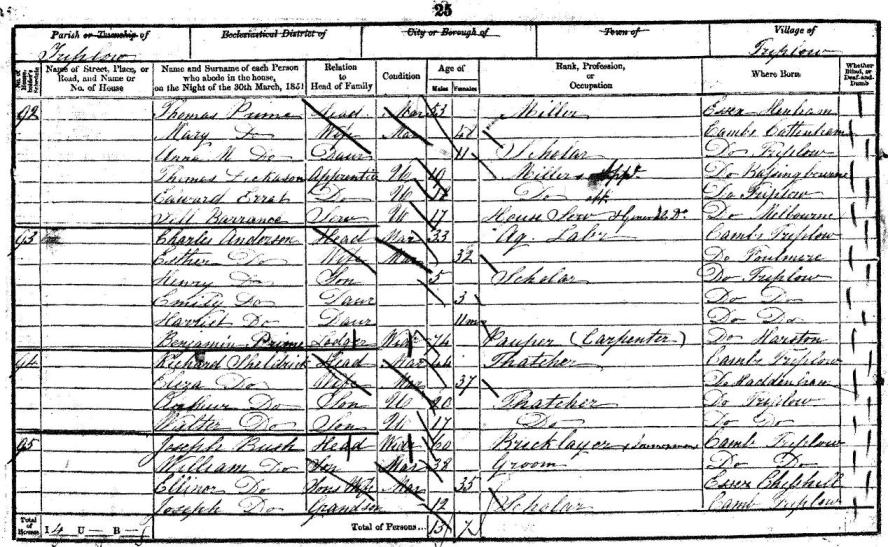 25
Parish or Township of Ecclesiastical District of City or Borough of Town of Village of
Triplow Triplow
No. of House-holder's Schedule Name of Street, Place, or Road, and Name or No. of House Name and Surname of each Person who abode in the house, on the Night of the 30th March, 1851 Relation to Head of Family Condition Age of Males Females Rank, Profession, or Occupation Where Born Whether Blind, or Deaf-and-Dumb
92 Thomas Prime Head Mar 53 Miller Essex
Mary Do Wife Mar Cambs Cottenham
Anna M Do Daur 11 Scholar Do Triplow
Thomas Apprentice Un 19 Millers App. Do Bassingbourne
Edward Do Un Do Do Triplow
Barrance Serv Un 17 House Serv Do Melbourne
93 Charles Anderson Head Mar 33 Ag. Labr Cambs Triplow
Esther Do Wife Mar 32 Do Foulmere
Henry Do Son 5 Scholar Do Triplow
Emily Do Daur 3 Do Do
Harriet Do Daur 11 mo Do Do
Benjamin Prime Lodger Widr 74 Pauper (Carpenter) Do Harston
94 Richard Sheldrick Head Mar 44 Thatcher Cambs Triplow
Eliza Do Wife Mar 37 Do Haddenham
Arthur Do Son Un 20 Thatcher Do Triplow
Walter Do Son Un 17 Do Do Do
95 Joseph Bush Head Widr 60 Bricklayer Cambs Triplow
William Do Son Mar 38 Groom Do Do
Ellinor Do Sons Wife Mar 35 Essex
Joseph Do Grandson 12 Scholar Camb Triplow
Total of Houses I 4 U — B — Total of Persons... 13 7